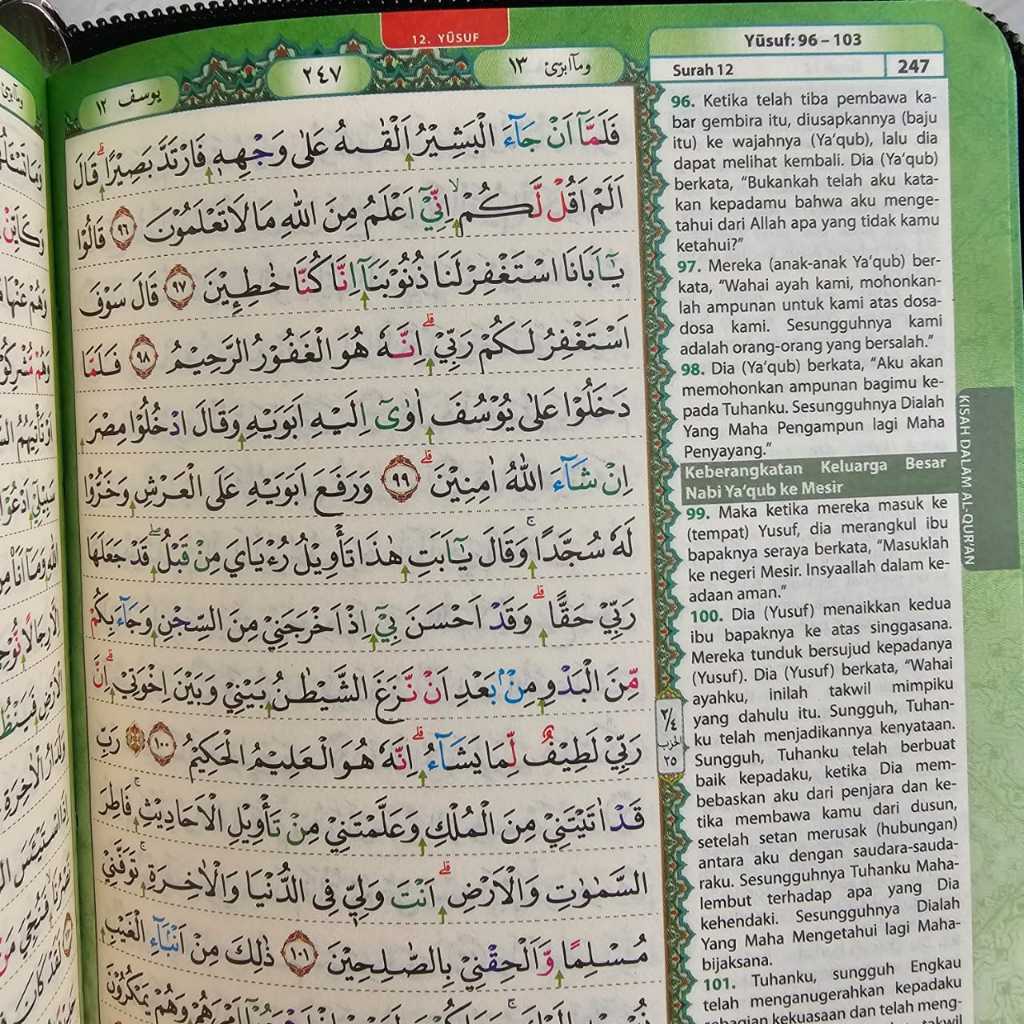 12. YŪSUF
Yūsuf: 96 – 103
Surah 12
247
يوسف ١٢
٢٤٧
وماابرئ ١٣
فَلَمَّآ اَنْ جَاۤءَ الْبَشِيْرُ اَلْقٰىهُ عَلٰى وَجْهِهٖ فَارْتَدَّ بَصِيْرًاۗ قَالَ
اَلَمْ اَقُلْ لَّكُمْۙ اِنِّيْٓ اَعْلَمُ مِنَ اللّٰهِ مَا لَا تَعْلَمُوْنَ ٩٦ قَالُوْا
يٰٓاَبَانَا اسْتَغْفِرْ لَنَا ذُنُوْبَنَآ اِنَّا كُنَّا خٰطِـِٕيْنَ ٩٧ قَالَ سَوْفَ
اَسْتَغْفِرُ لَكُمْ رَبِّيْۗ اِنَّهٗ هُوَ الْغَفُوْرُ الرَّحِيْمُ ٩٨ فَلَمَّا
دَخَلُوْا عَلٰى يُوْسُفَ اٰوٰٓى اِلَيْهِ اَبَوَيْهِ وَقَالَ ادْخُلُوْا مِصْرَ
اِنْ شَاۤءَ اللّٰهُ اٰمِنِيْنَۗ ٩٩ وَرَفَعَ اَبَوَيْهِ عَلَى الْعَرْشِ وَخَرُّوْا
لَهٗ سُجَّدًاۚ وَقَالَ يٰٓاَبَتِ هٰذَا تَأْوِيْلُ رُءْيَايَ مِنْ قَبْلُ ۖقَدْ جَعَلَهَا
رَبِّيْ حَقًّاۗ وَقَدْ اَحْسَنَ بِيْٓ اِذْ اَخْرَجَنِيْ مِنَ السِّجْنِ وَجَاۤءَ بِكُمْ
مِّنَ الْبَدْوِ مِنْۢ بَعْدِ اَنْ نَّزَغَ الشَّيْطٰنُ بَيْنِيْ وَبَيْنَ اِخْوَتِيْۗ اِنَّ
رَبِّيْ لَطِيْفٌ لِّمَا يَشَاۤءُۗ اِنَّهٗ هُوَ الْعَلِيْمُ الْحَكِيْمُ ١٠٠ رَبِّ
قَدْ اٰتَيْتَنِيْ مِنَ الْمُلْكِ وَعَلَّمْتَنِيْ مِنْ تَأْوِيْلِ الْاَحَادِيْثِۚ فَاطِرَ
السَّمٰوٰتِ وَالْاَرْضِۗ اَنْتَ وَلِيّٖ فِى الدُّنْيَا وَالْاٰخِرَةِۚ تَوَفَّنِيْ
مُسْلِمًا وَّاَلْحِقْنِيْ بِالصّٰلِحِيْنَ ١٠١ ذٰلِكَ مِنْ اَنْۢبَاۤءِ الْغَيْبِ
٢/٤
الحزب
٢٥
96. Ketika telah tiba pembawa ka-
bar gembira itu, diusapkannya (baju
itu) ke wajahnya (Ya‘qub), lalu dia
dapat melihat kembali. Dia (Ya‘qub)
berkata, “Bukankah telah aku kata-
kan kepadamu bahwa aku menge-
tahui dari Allah apa yang tidak kamu
ketahui?”
97. Mereka (anak-anak Ya‘qub) ber-
kata, “Wahai ayah kami, mohonkan-
lah ampunan untuk kami atas dosa-
dosa kami. Sesungguhnya kami
adalah orang-orang yang bersalah.”
98. Dia (Ya‘qub) berkata, “Aku akan
memohonkan ampunan bagimu ke-
pada Tuhanku. Sesungguhnya Dialah
Yang Maha Pengampun lagi Maha
Penyayang.”
Keberangkatan Keluarga Besar
Nabi Ya‘qub ke Mesir
99. Maka ketika mereka masuk ke
(tempat) Yusuf, dia merangkul ibu
bapaknya seraya berkata, “Masuklah
ke negeri Mesir. Insyaallah dalam ke-
adaan aman.”
100. Dia (Yusuf) menaikkan kedua
ibu bapaknya ke atas singgasana.
Mereka tunduk bersujud kepadanya
(Yusuf). Dia (Yusuf) berkata, “Wahai
ayahku, inilah takwil mimpiku
yang dahulu itu. Sungguh, Tuhan-
ku telah menjadikannya kenyataan.
Sungguh, Tuhanku telah berbuat
baik kepadaku, ketika Dia mem-
bebaskan aku dari penjara dan ke-
tika membawa kamu dari dusun,
setelah setan merusak (hubungan)
antara aku dengan saudara-sauda-
raku. Sesungguhnya Tuhanku Maha-
lembut terhadap apa yang Dia
kehendaki. Sesungguhnya Dialah
Yang Maha Mengetahui lagi Maha-
bijaksana.
101. Tuhanku, sungguh Engkau
telah menganugerahkan kepadaku
sebagian kekuasaan dan telah meng-
KISAH DALAM AL-QUR'AN